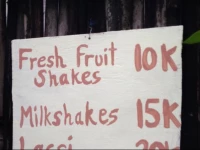 Fresh Fruit 10K
Shakes
Milkshakes 15K
Lassi 20K